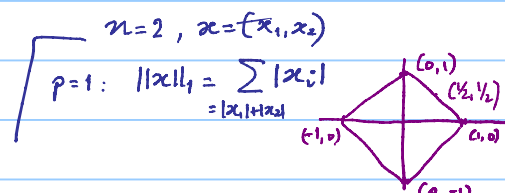 n=2, x=(x₁,x₂)
p=1: ||x||₁ = ∑|xᵢ|
=|x₁|+|x₂|
(0,1)
(½,½)
(-1,0)
(1,0)